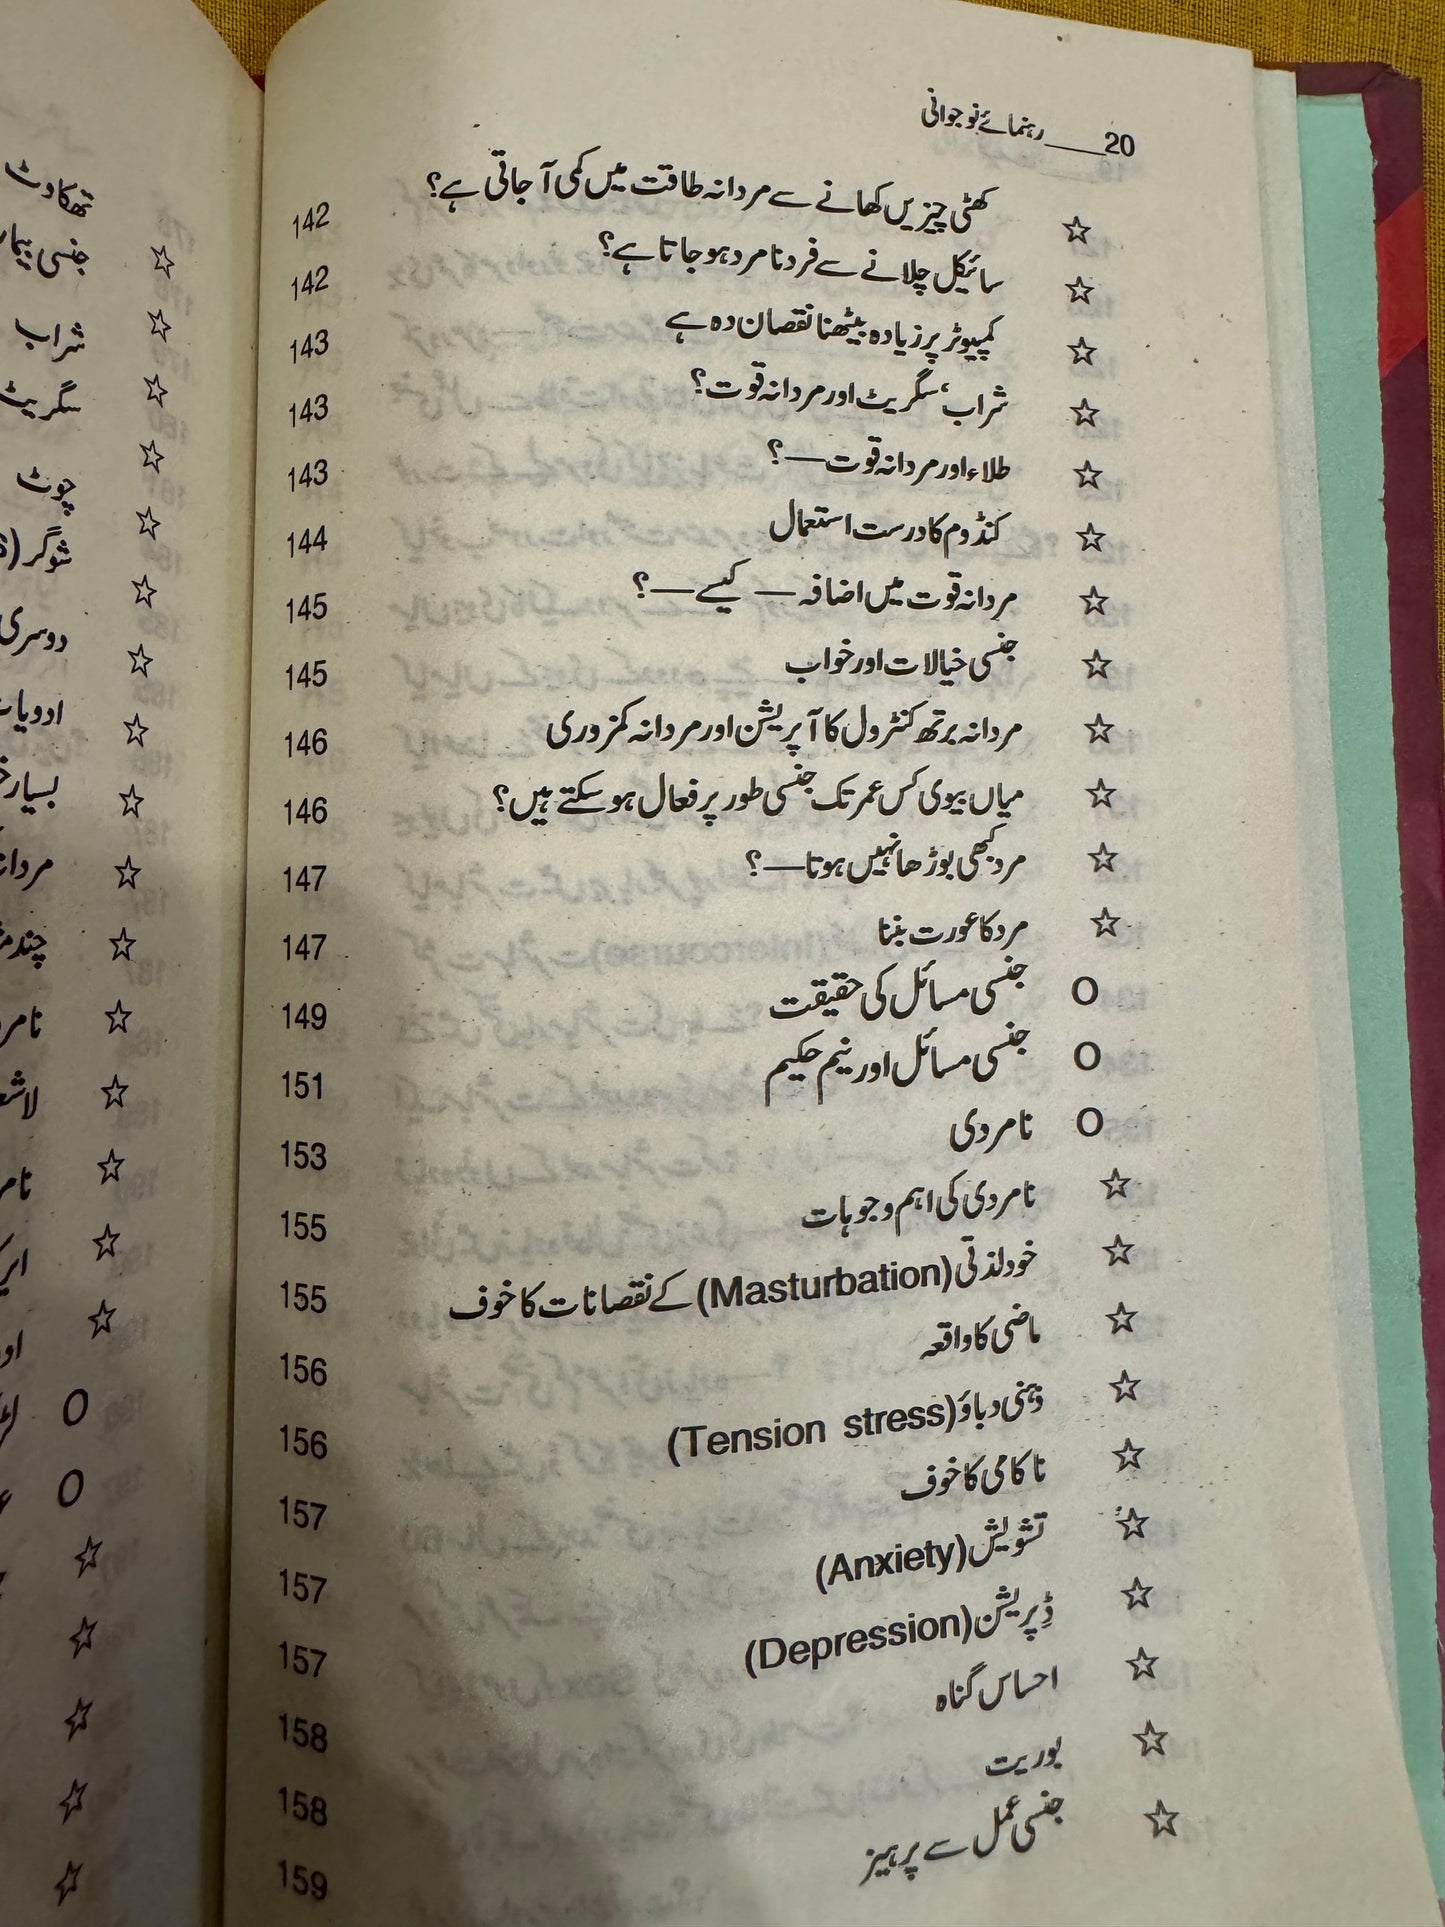 20____رہنمائے نوجوانی
☆ کھٹی چیزیں کھانے سے مردانہ طاقت میں کمی آ جاتی ہے؟ 142
☆ سائیکل چلانے سے فرد نامرد ہو جاتا ہے؟ 142
☆ کمپیوٹر پر زیادہ بیٹھنا نقصان دہ ہے 143
☆ شراب، سگریٹ اور مردانہ قوت؟ 143
☆ طلاء اور مردانہ قوت—؟ 143
☆ کنڈوم کا درست استعمال 144
☆ مردانہ قوت میں اضافہ — کیسے —؟ 145
☆ جنسی خیالات اور خواب 145
☆ مردانہ برتھ کنٹرول کا آپریشن اور مردانہ کمزوری 146
☆ میاں بیوی کس عمر تک جنسی طور پر فعال ہو سکتے ہیں؟ 146
☆ مرد کبھی بوڑھا نہیں ہوتا—؟ 147
☆ مرد کا عورت بننا 147
O جنسی مسائل کی حقیقت 149
O جنسی مسائل اور نیم حکیم 151
O نامردی 153
☆ نامردی کی اہم وجوہات 155
☆ خود لذتی (Masturbation) کے نقصانات کا خوف 155
☆ ماضی کا واقعہ 156
☆ ذہنی دباؤ (Tension stress) 156
☆ ناکامی کا خوف 157
☆ تشویش (Anxiety) 157
☆ ڈپریشن (Depression) 157
☆ احساس گناہ 158
☆ بوریت 158
☆ جنسی عمل سے پرہیز 159
تھکاوٹ
☆ جنسی
☆ شراب
☆ سگریٹ
☆ چوٹ
☆ شوگر
☆ دوسری
☆
☆
☆
☆
☆
☆
☆
☆
☆
O
O
☆
☆
☆
☆
☆